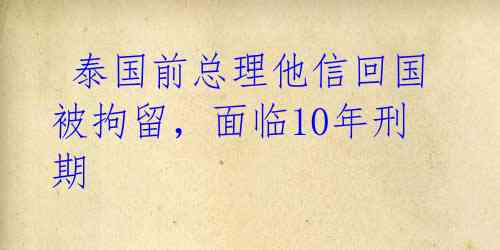 泰国前总理他信回国
被拘留，面临10年刑
期